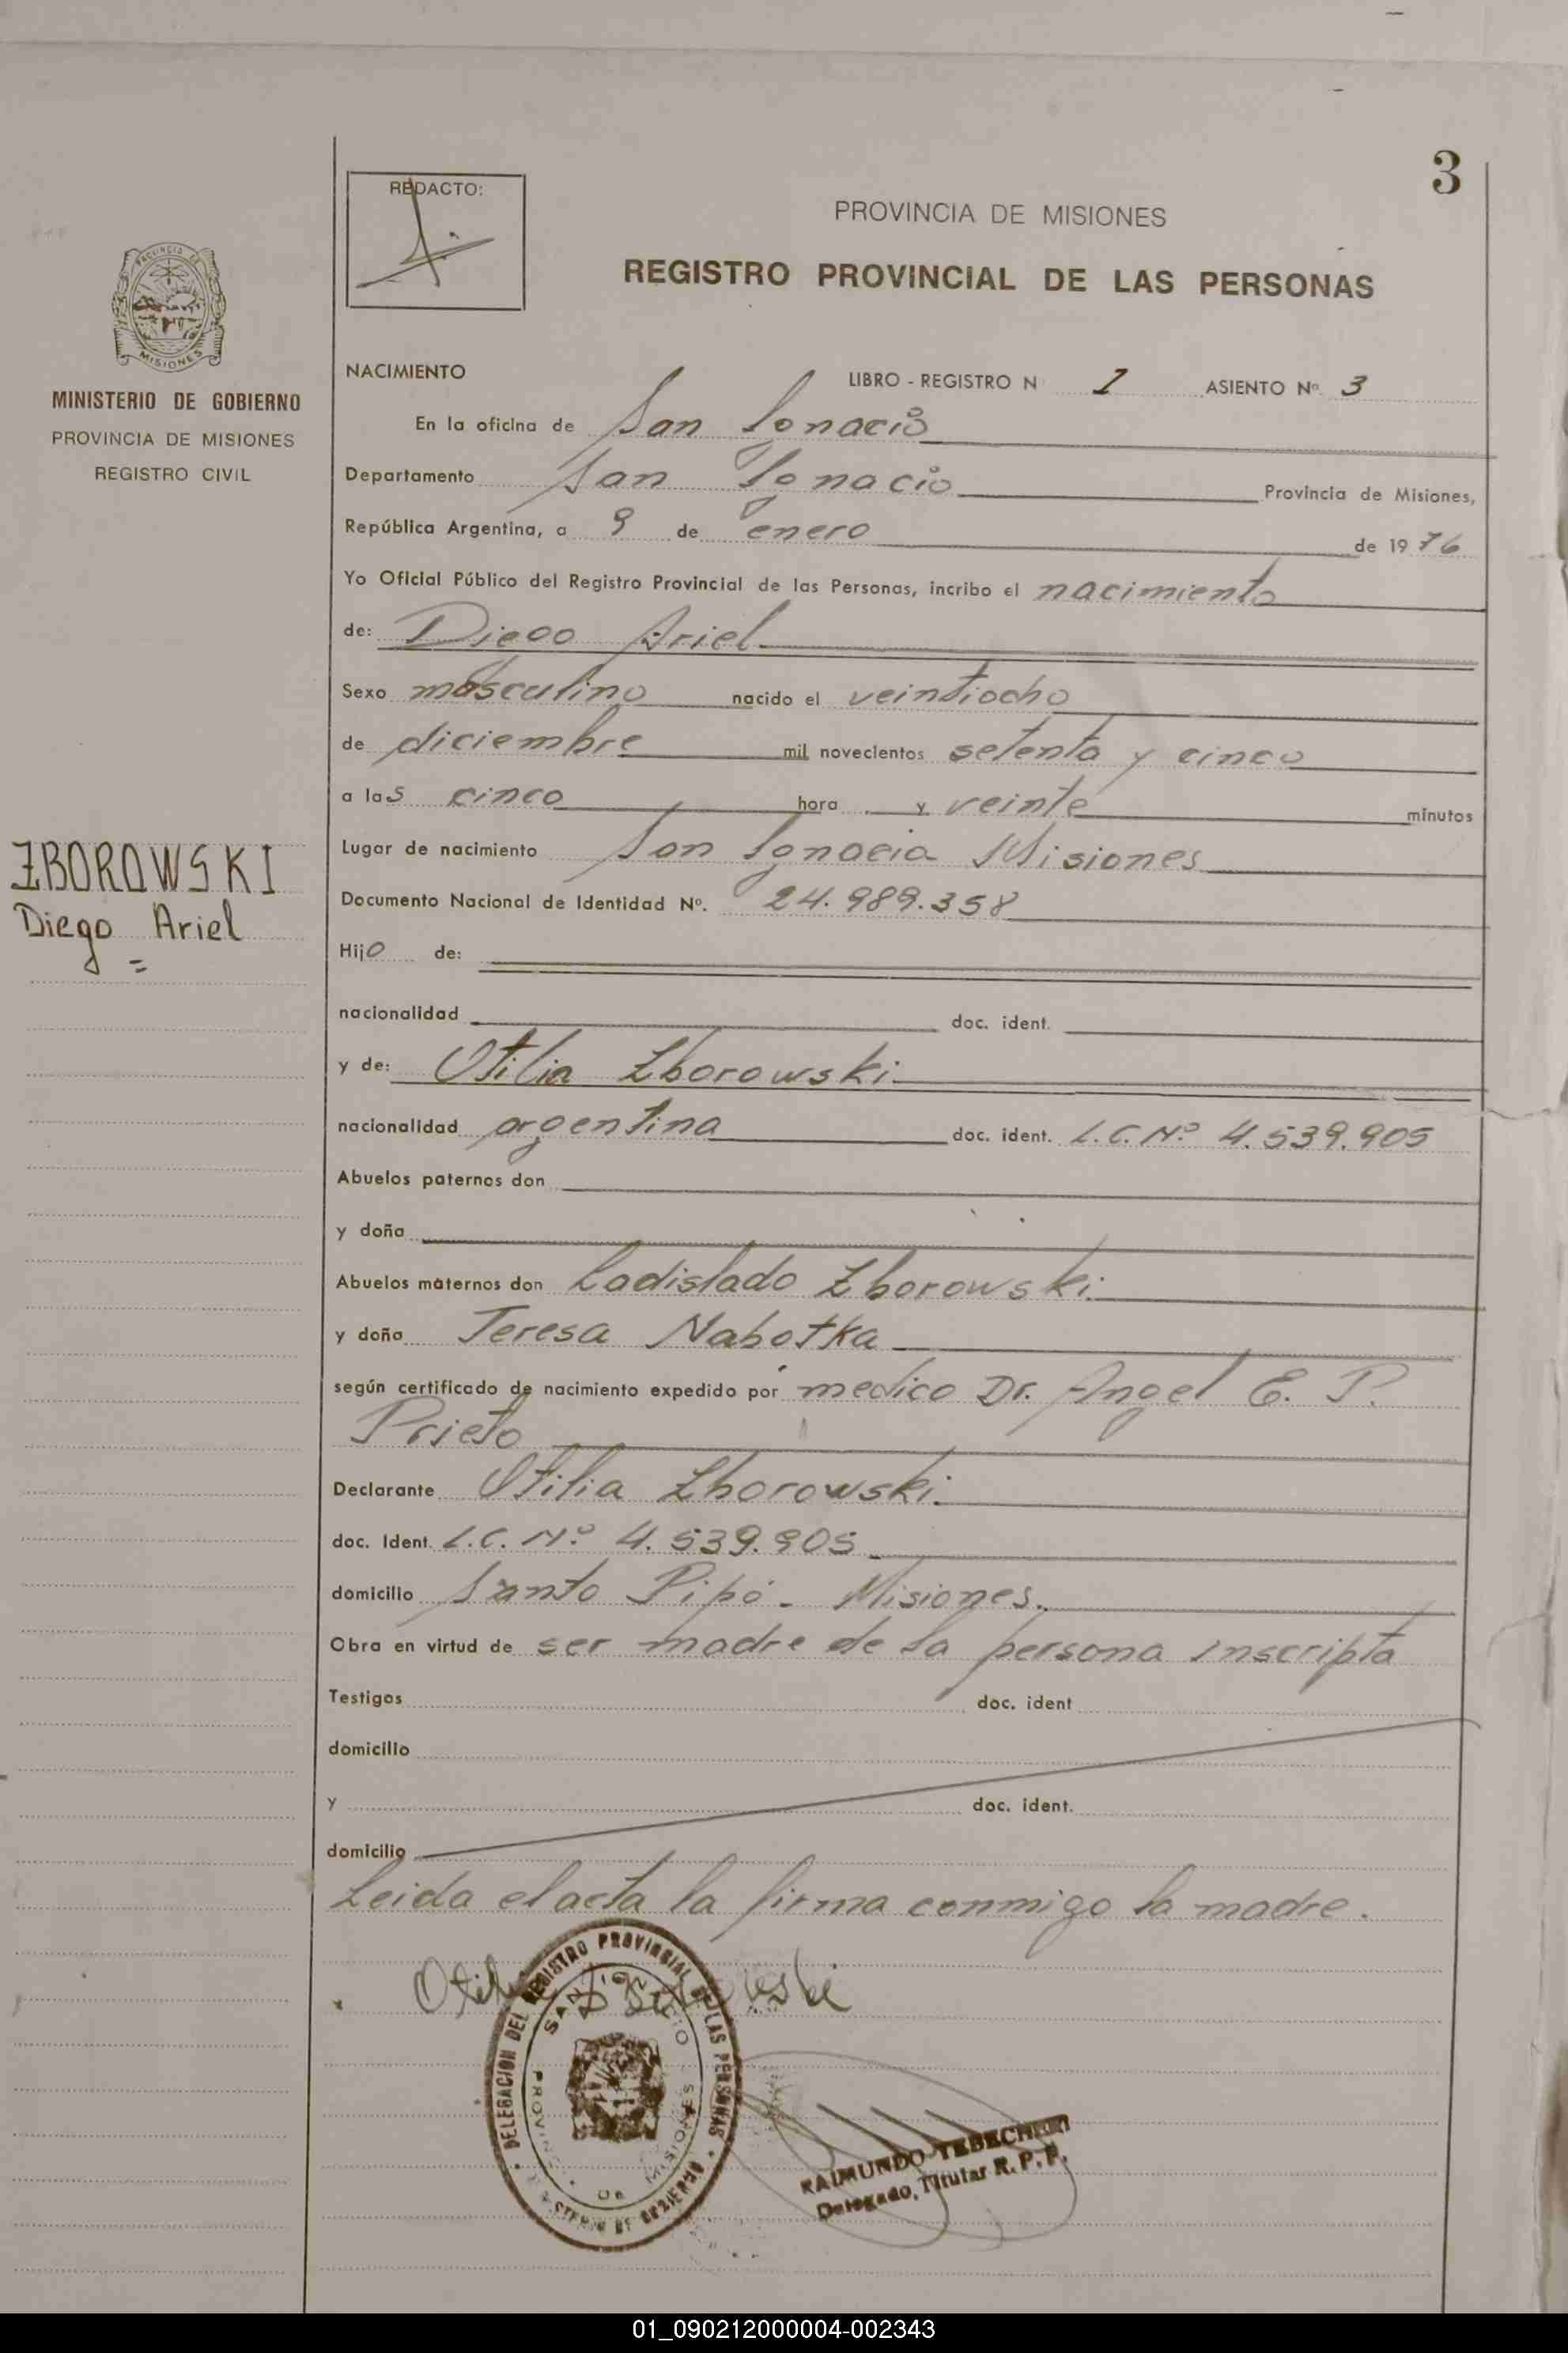 3
REDACTO:
PROVINCIA DE MISIONES
REGISTRO PROVINCIAL DE LAS PERSONAS
PROVINCIA DE
MISIONES
MINISTERIO DE GOBIERNO
PROVINCIA DE MISIONES
REGISTRO CIVIL
NACIMIENTO LIBRO - REGISTRO N 1 ASIENTO Nº. 3
En la oficina de San Ignacio
Departamento San Ignacio Provincia de Misiones,
República Argentina, a 9 de enero de 1976
Yo Oficial Público del Registro Provincial de las Personas, incribo el nacimiento
de: Diego Ariel
Sexo masculino nacido el veintiocho
de diciembre mil novecientos setenta y cinco
a las cinco hora y veinte minutos
Lugar de nacimiento San Ignacio Misiones
Documento Nacional de Identidad Nº. 24.989.358
ZBOROWSKI
Diego Ariel
=
Hijo de:
nacionalidad doc. ident.
y de: Otilia Zborowski
nacionalidad argentina doc. ident. L.C. Nº 4.539.905
Abuelos paternos don
y doña
Abuelos maternos don Ladislado Zborowski
y doña Teresa Nabotka
según certificado de nacimiento expedido por medico Dr. Angel E. P.
Prieto
Declarante Otilia Zborowski
doc. Ident. L.C. Nº 4.539.905
domicilio Santo Pipó - Misiones.
Obra en virtud de ser madre de la persona inscripta
Testigos doc. ident
domicilio
y doc. ident.
domicilio
Leida el acta la firma conmigo la madre.
DELEGACION DEL REGISTRO PROVINCIAL DE LAS PERSONAS
DE MISIONES
RAIMUNDO
Delegado, Titular R. P. P.
01_090212000004-002343